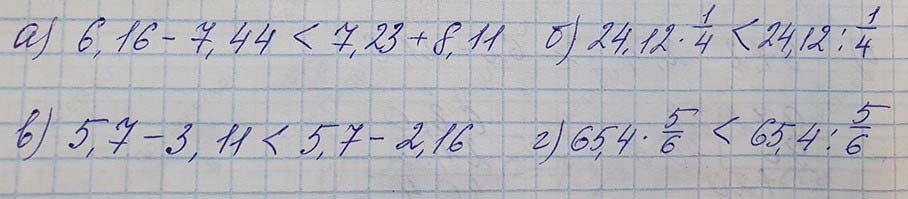 а) 6,16 - 7,44 < 7,23 + 8,11 б) 24,12 · 1/4 < 24,12 : 1/4
в) 5,7 - 3,11 < 5,7 - 2,16 г) 65,4 · 5/6 < 65,4 : 5/6